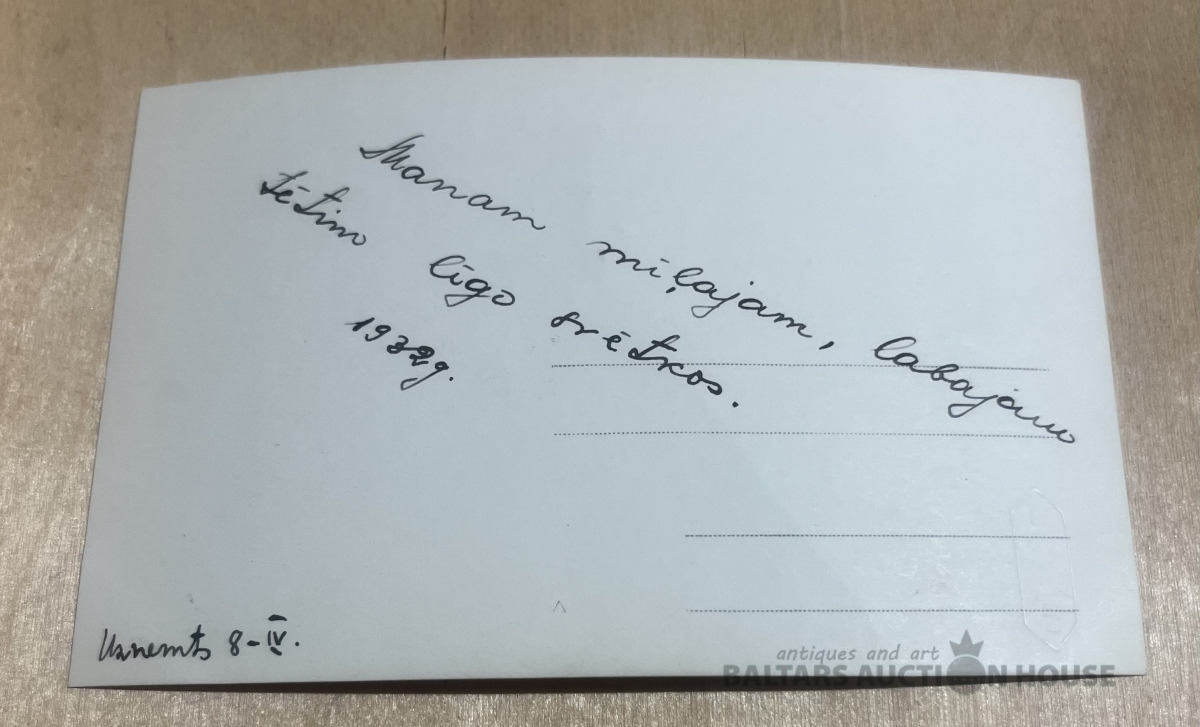 Manam mīļajam, labajam
tētim līgo svētkos.
1932g.
Uzņemts 8-IV.
antiques and art
BALTARS AUCTION HOUSE